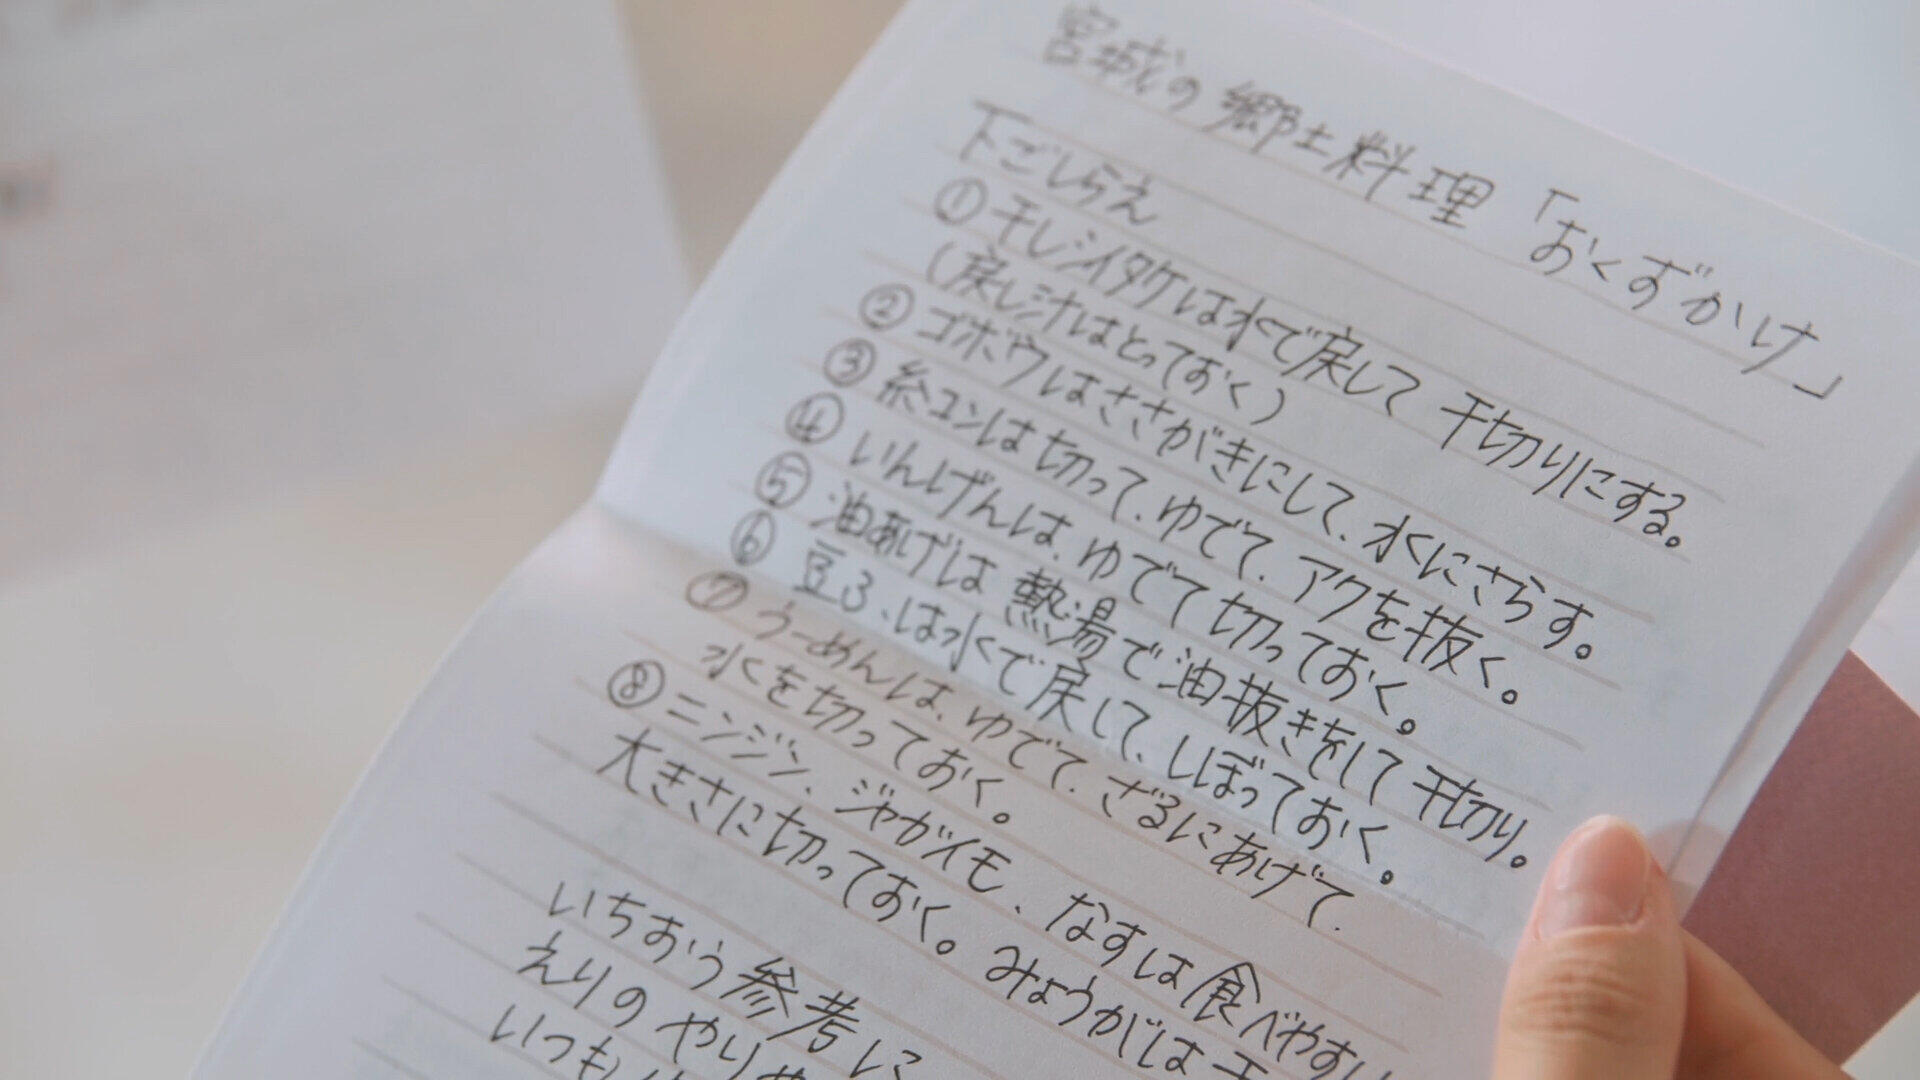 宮城の郷土料理「おくずかけ」
下ごしらえ
①干しシイタケは水で戻して千切りにする。
(戻し汁はとっておく)
②ゴボウはささがきにして、水にさらす。
③糸コンは切って、ゆでて、アクを抜く。
④いんげんは、ゆでて切っておく。
⑤油あげは熱湯で油抜きをして千切り。
⑥豆ふ、は水で戻して、しぼっておく。
⑦うーめんは、ゆでて、ざるにあげて、
水を切っておく。
⑧ニンジン、ジャガイモ、なすは食べやすい
大きさに切っておく。みょうがは千
いちおう参考に
えりのやり
いつも